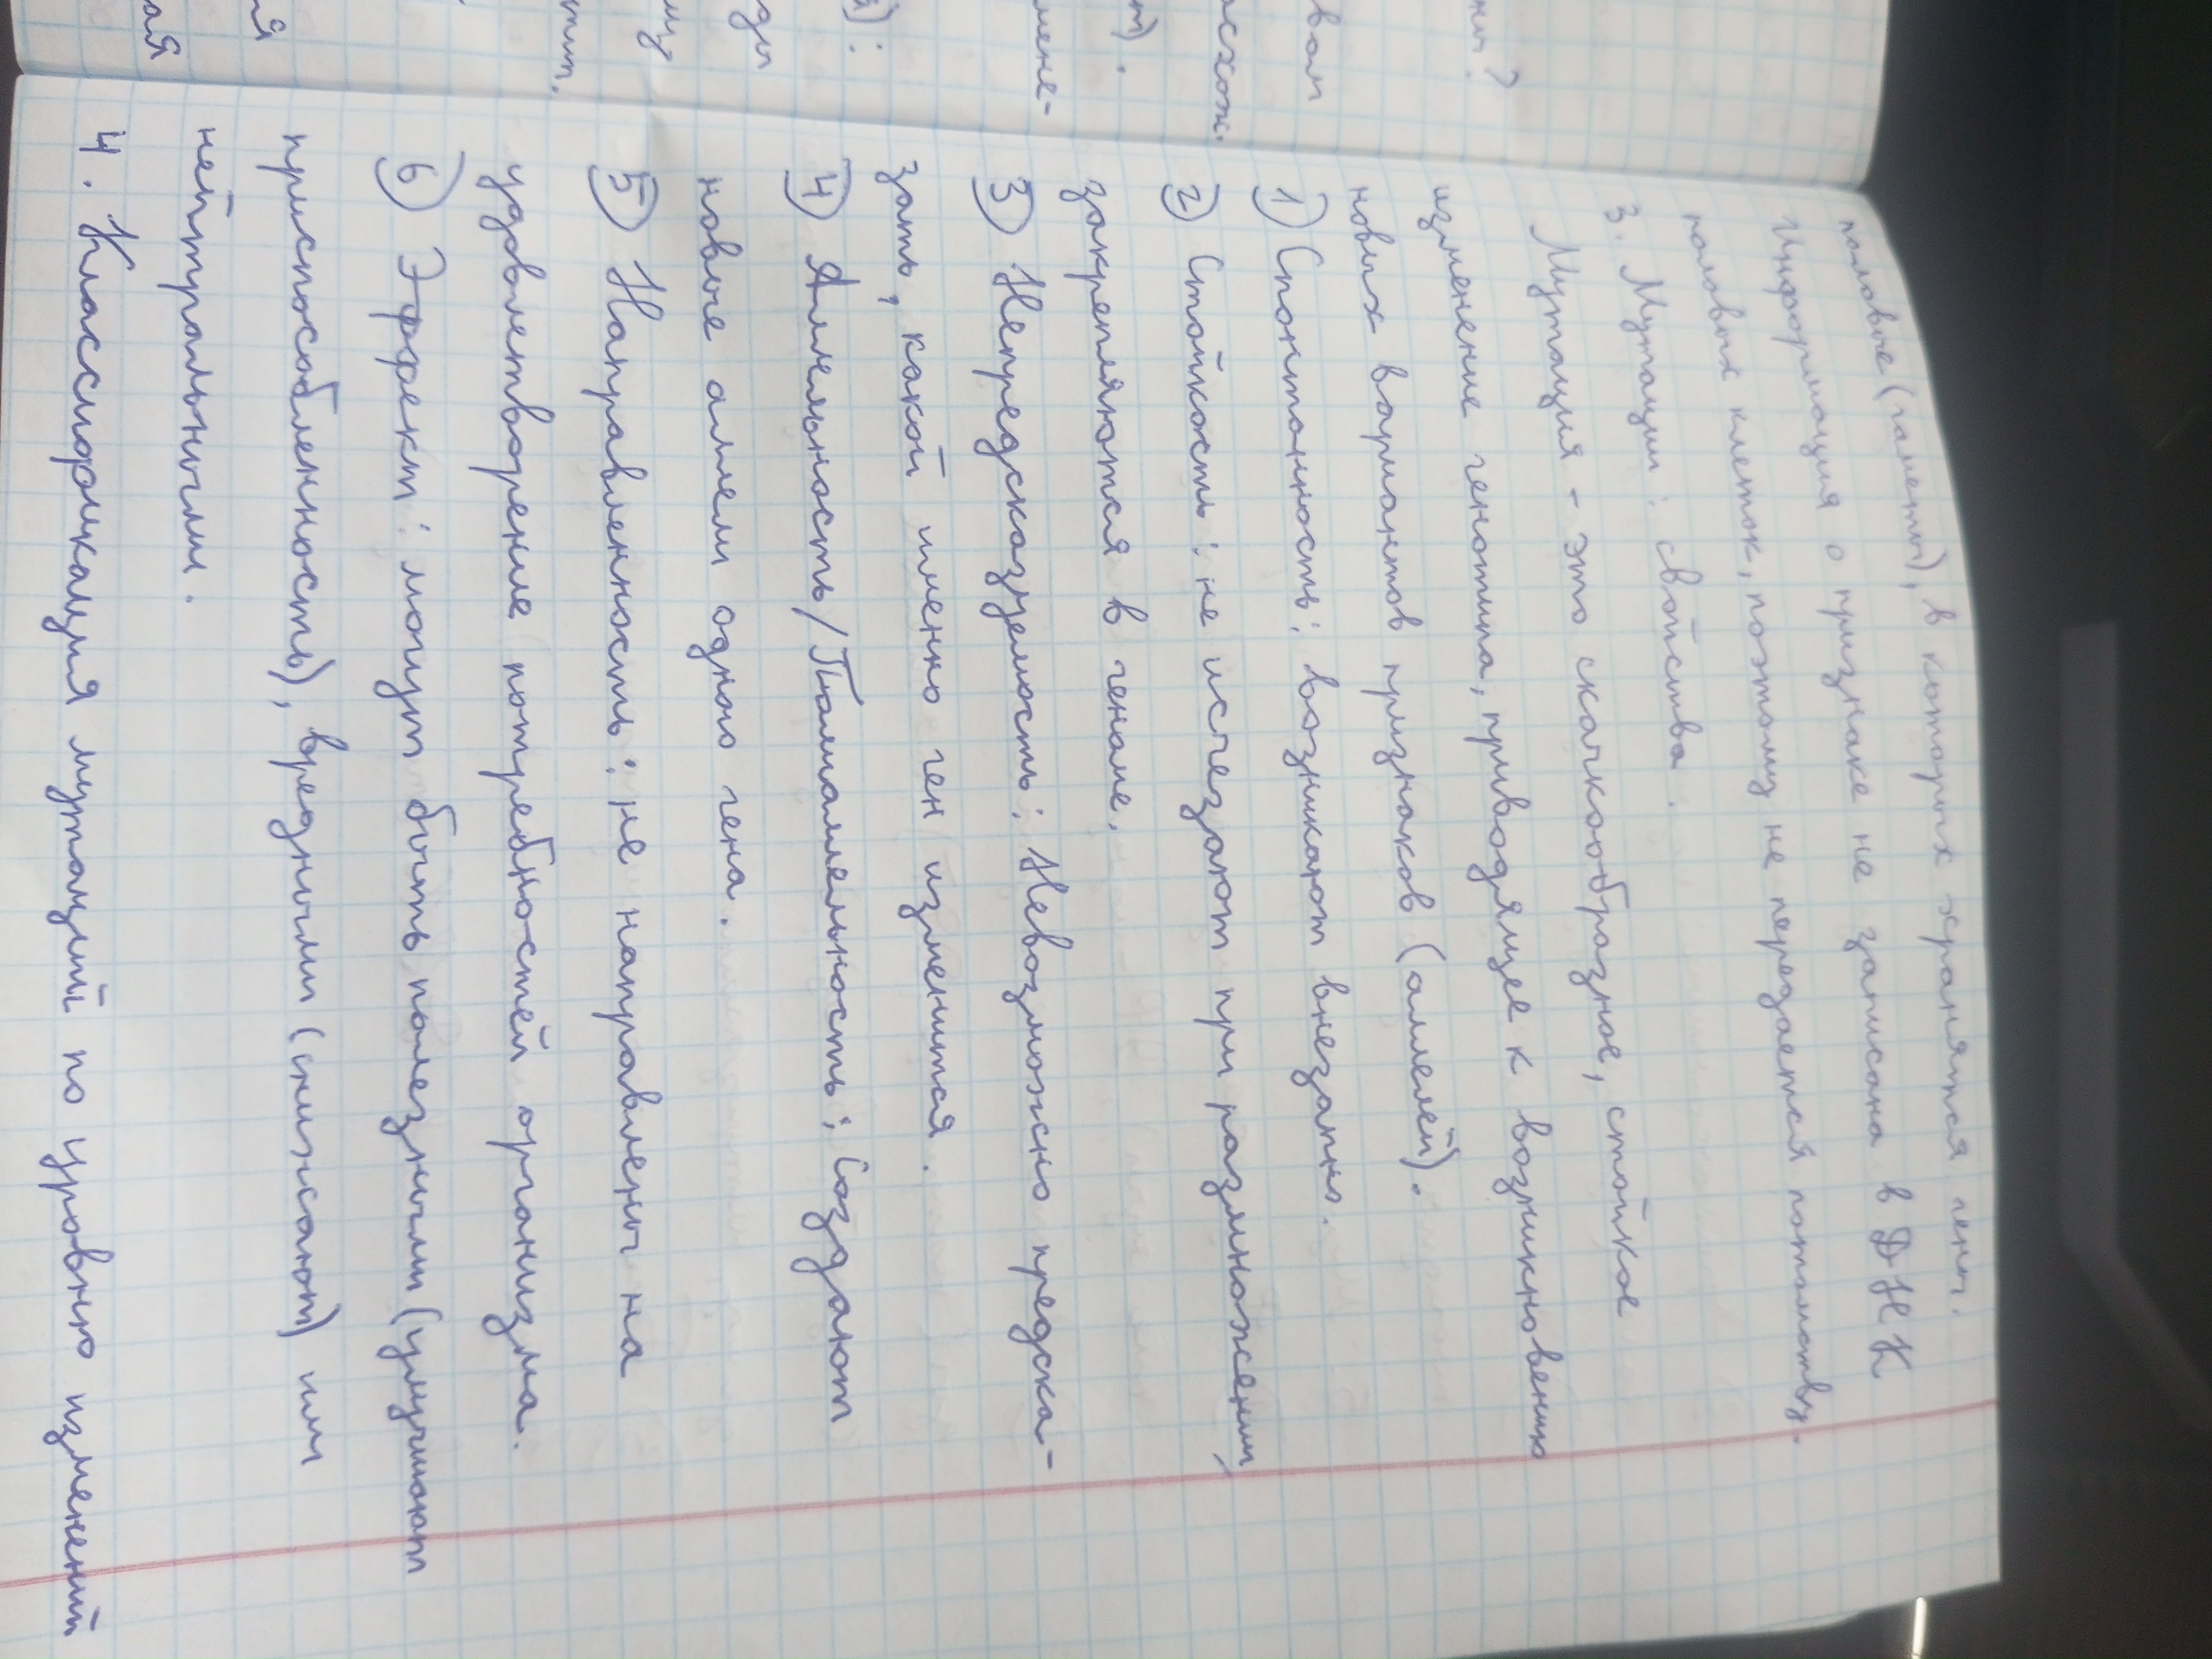 половые (гаметы), в которых хранятся гены.
Информация о признаке не записана в ДНК
половых клеток, поэтому не передается потомству.
3. Мутации: свойства.
Мутация - это скачкообразное, стойкое
изменение генотипа, приводящее к возникновению
новых вариантов признаков (аллелей).
1) Спонтанность: возникают внезапно.
2) Стойкость: не исчезают при размножении,
закрепляются в геноме.
3) Непредсказуемость: Невозможно предска-
зать, какой именно ген изменится.
4) Аллельность/Полиаллельность: Создают
новые аллели одного гена.
5) Направленность: не направлены на
удовлетворение потребностей организма.
6) Эффект: могут быть полезными (улучшают
приспособленность), вредными (снижают) или
нейтральными.
4. Классификация мутаций по уровню изменений